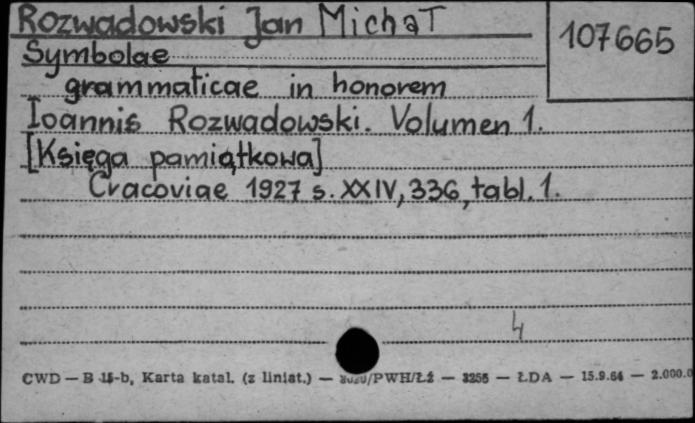 Rozwadowski Jan Michał
107665
Symbolae
grammaticae in honorem
Ioannis Rozwadowski. Volumen 1.
[Księga pamiątkowa]
Cracoviae 1927 s. XXIV, 336, tabl. 1.
4
CWD — B 15-b, Karta katal. (z liniat.) — /PWH/Łź — 3255 — ŁDA — 15.9.64 — 2.000.0